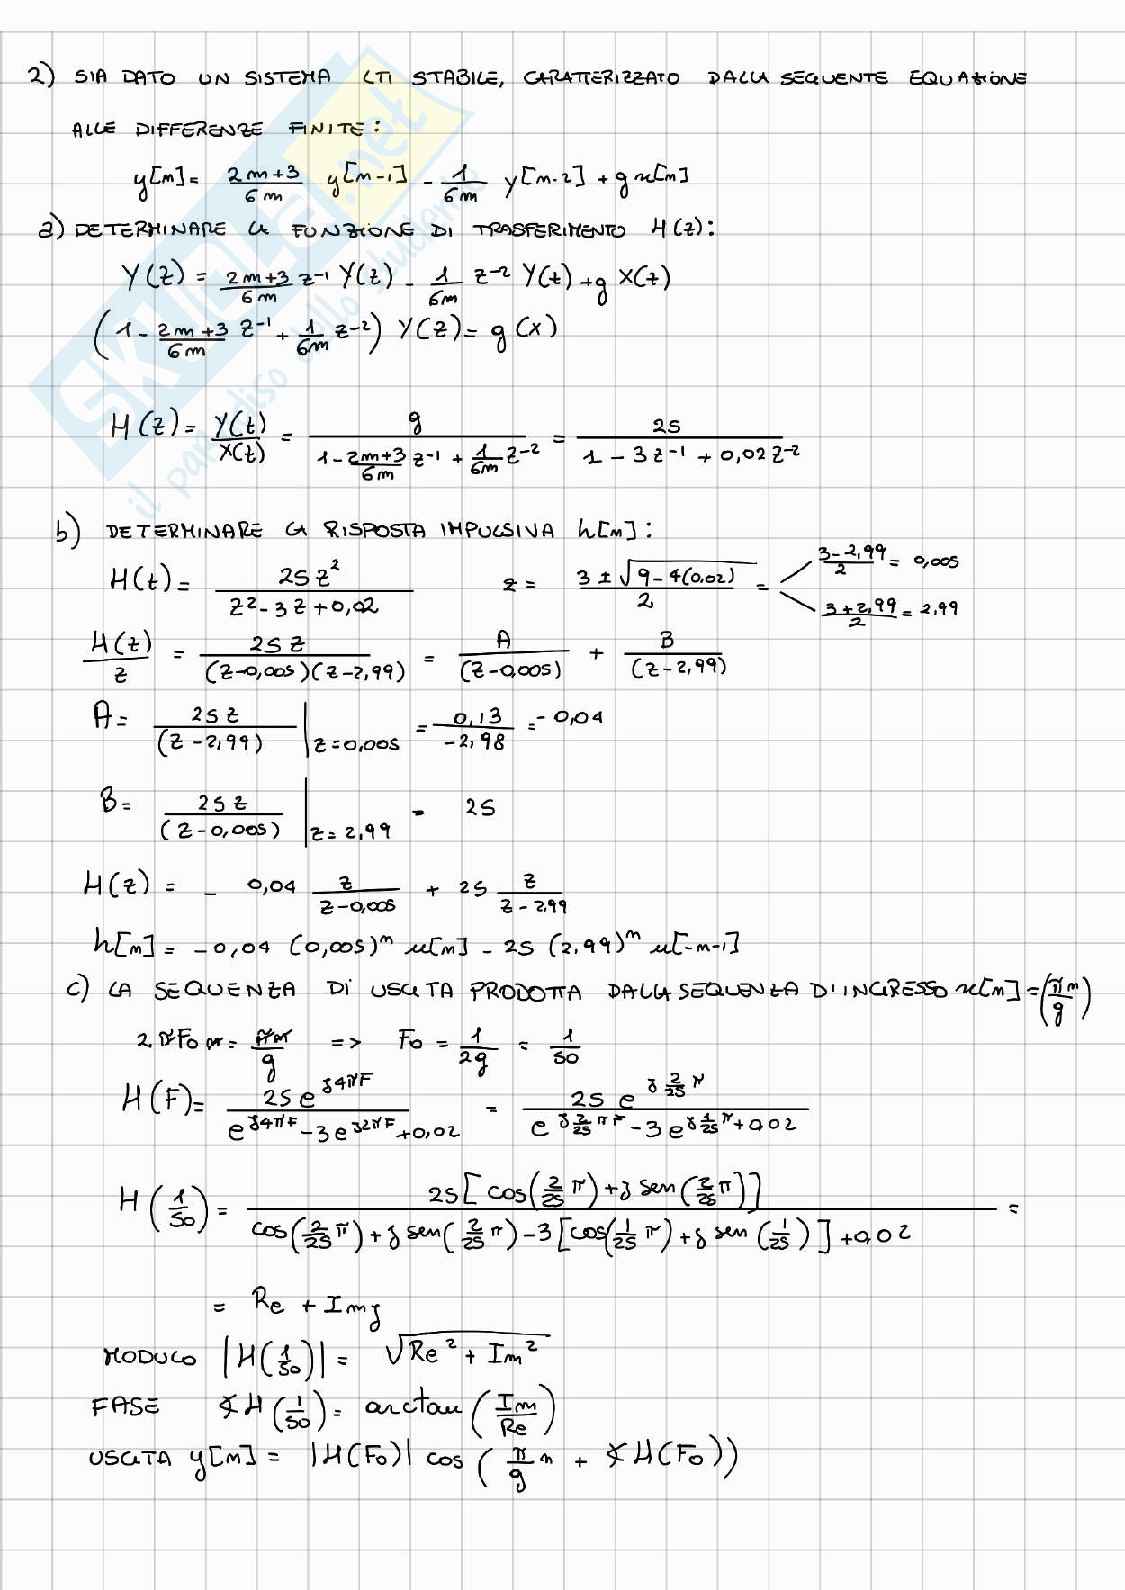 2) SIA DATO UN SISTEMA LTI STABILE, CARATTERIZZATO DALLA SEGUENTE EQUAZIONE
ALLE DIFFERENZE FINITE:
y[m] = 2m+3/6m y[m-1] - 1/6m y[m-2] + g x[m]
a) DETERMINARE LA FUNZIONE DI TRASFERIMENTO H(z):
Y(z) = 2m+3/6m z^-1 Y(z) - 1/6m z^-2 Y(z) + g X(z)
(1 - 2m+3/6m z^-1 + 1/6m z^-2) Y(z) = g (x)
H(z) = Y(z)/X(z) = g/(1 - 2m+3/6m z^-1 + 1/6m z^-2) = 25/(1 - 3z^-1 + 0,02z^-2)
b) DETERMINARE LA RISPOSTA IMPULSIVA h[m]:
H(z) = 25z^2/(z^2 - 3z + 0,02) z = (3 ± √9-4(0,02))/2 = 3-2,99/2 = 0,005
3+2,99/2 = 2,99
H(z)/z = 25z/((z-0,005)(z-2,99)) = A/(z-0,005) + B/(z-2,99)
A = 25z/(z-2,99) | z=0,005 = 0,13/-2,98 = -0,04
B = 25z/(z-0,005) | z=2,99 = 25
H(z) = - 0,04 z/(z-0,005) + 25 z/(z-2,99)
h[m] = -0,04 (0,005)^m u[m] - 25 (2,99)^m u[-m-1]
c) LA SEQUENZA DI USCITA PRODOTTA DALLA SEQUENZA DI INGRESSO x[m] = (πm/g)
2πF0m = πm/g => F0 = 1/2g = 1/50
H(F) = 25e^j4πF/(e^j4πF - 3e^j2πF + 0,02) = 25e^j2/25π/(e^j2/25π - 3e^j1/25π + 0,02)
H(1/50) = 25[cos(2/25π) + j sen(2/25π)]/(cos(2/25π) + j sen(2/25π) - 3[cos(1/25π) + j sen(1/25)] + 0,02) =
= Re + Imj
MODULO |H(1/50)| = √Re^2 + Im^2
FASE ∢H(1/50) = arctan(Im/Re)
USCITA y[m] = |H(F0)| cos(π/g n + ∢H(F0))
SKUOLA.net
il paradiso dello studente